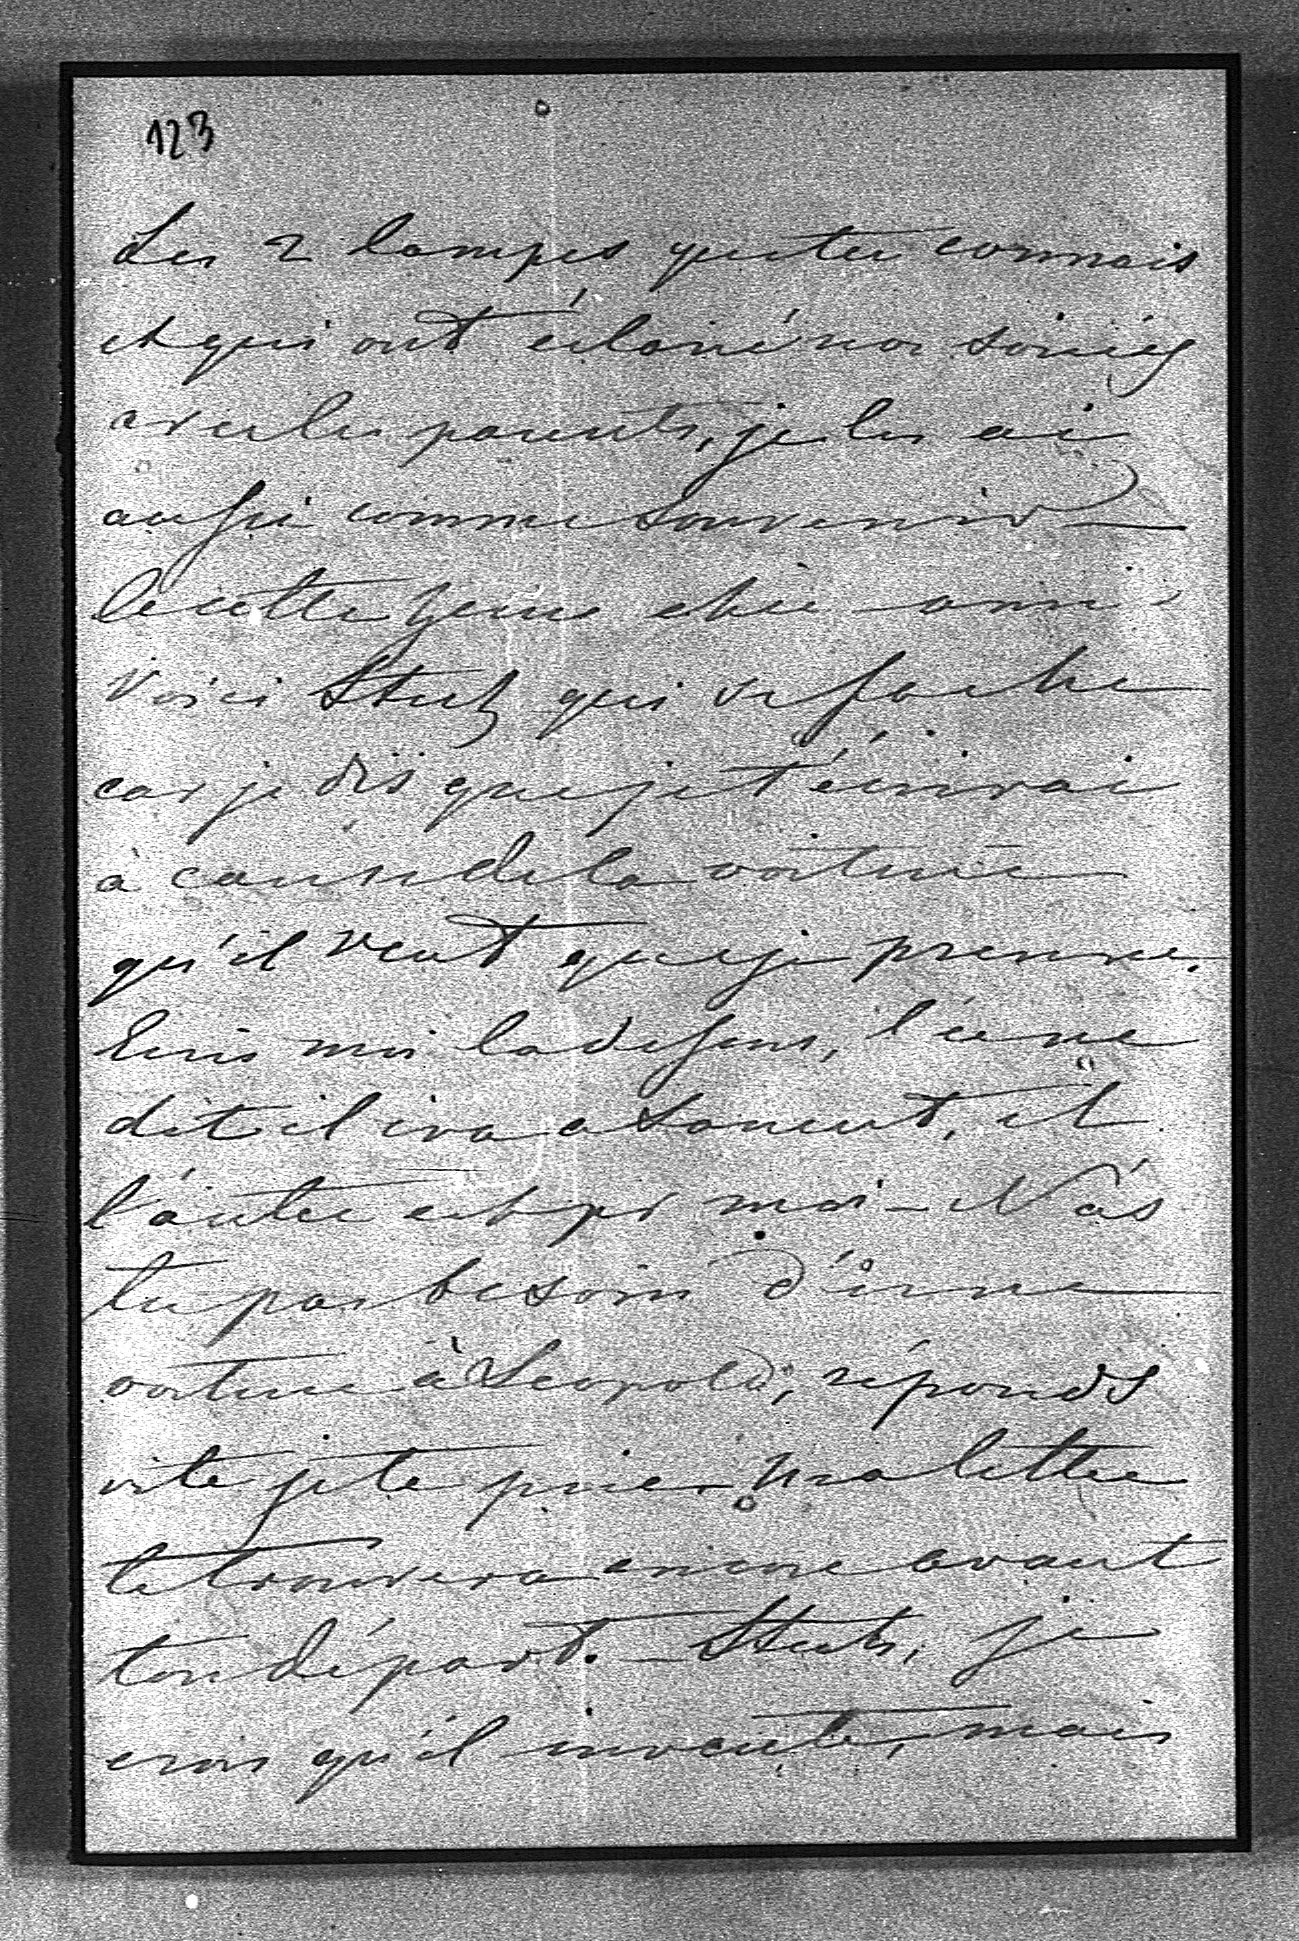 123
Les 2 lampes que tu connais
et qui ont éclairé nos soirées
avec les parents, je les ai
aussi comme souvenir
de cette jeune chère amie
Voici Stutz qui se fache
car je dis que je t'écrirai
à cause de la voiture
qu'il veut que je prenne.
Ecris moi la dessus, l'une
dit il ira a et
l'autre est pr moi - N'as
tu pas besoin d'une
voiture à Léopold, réponds
vite je te prie. Ma lettre
te trouvera encore avant
ton départ. - Stutz, je
crois qu'il invente, mais